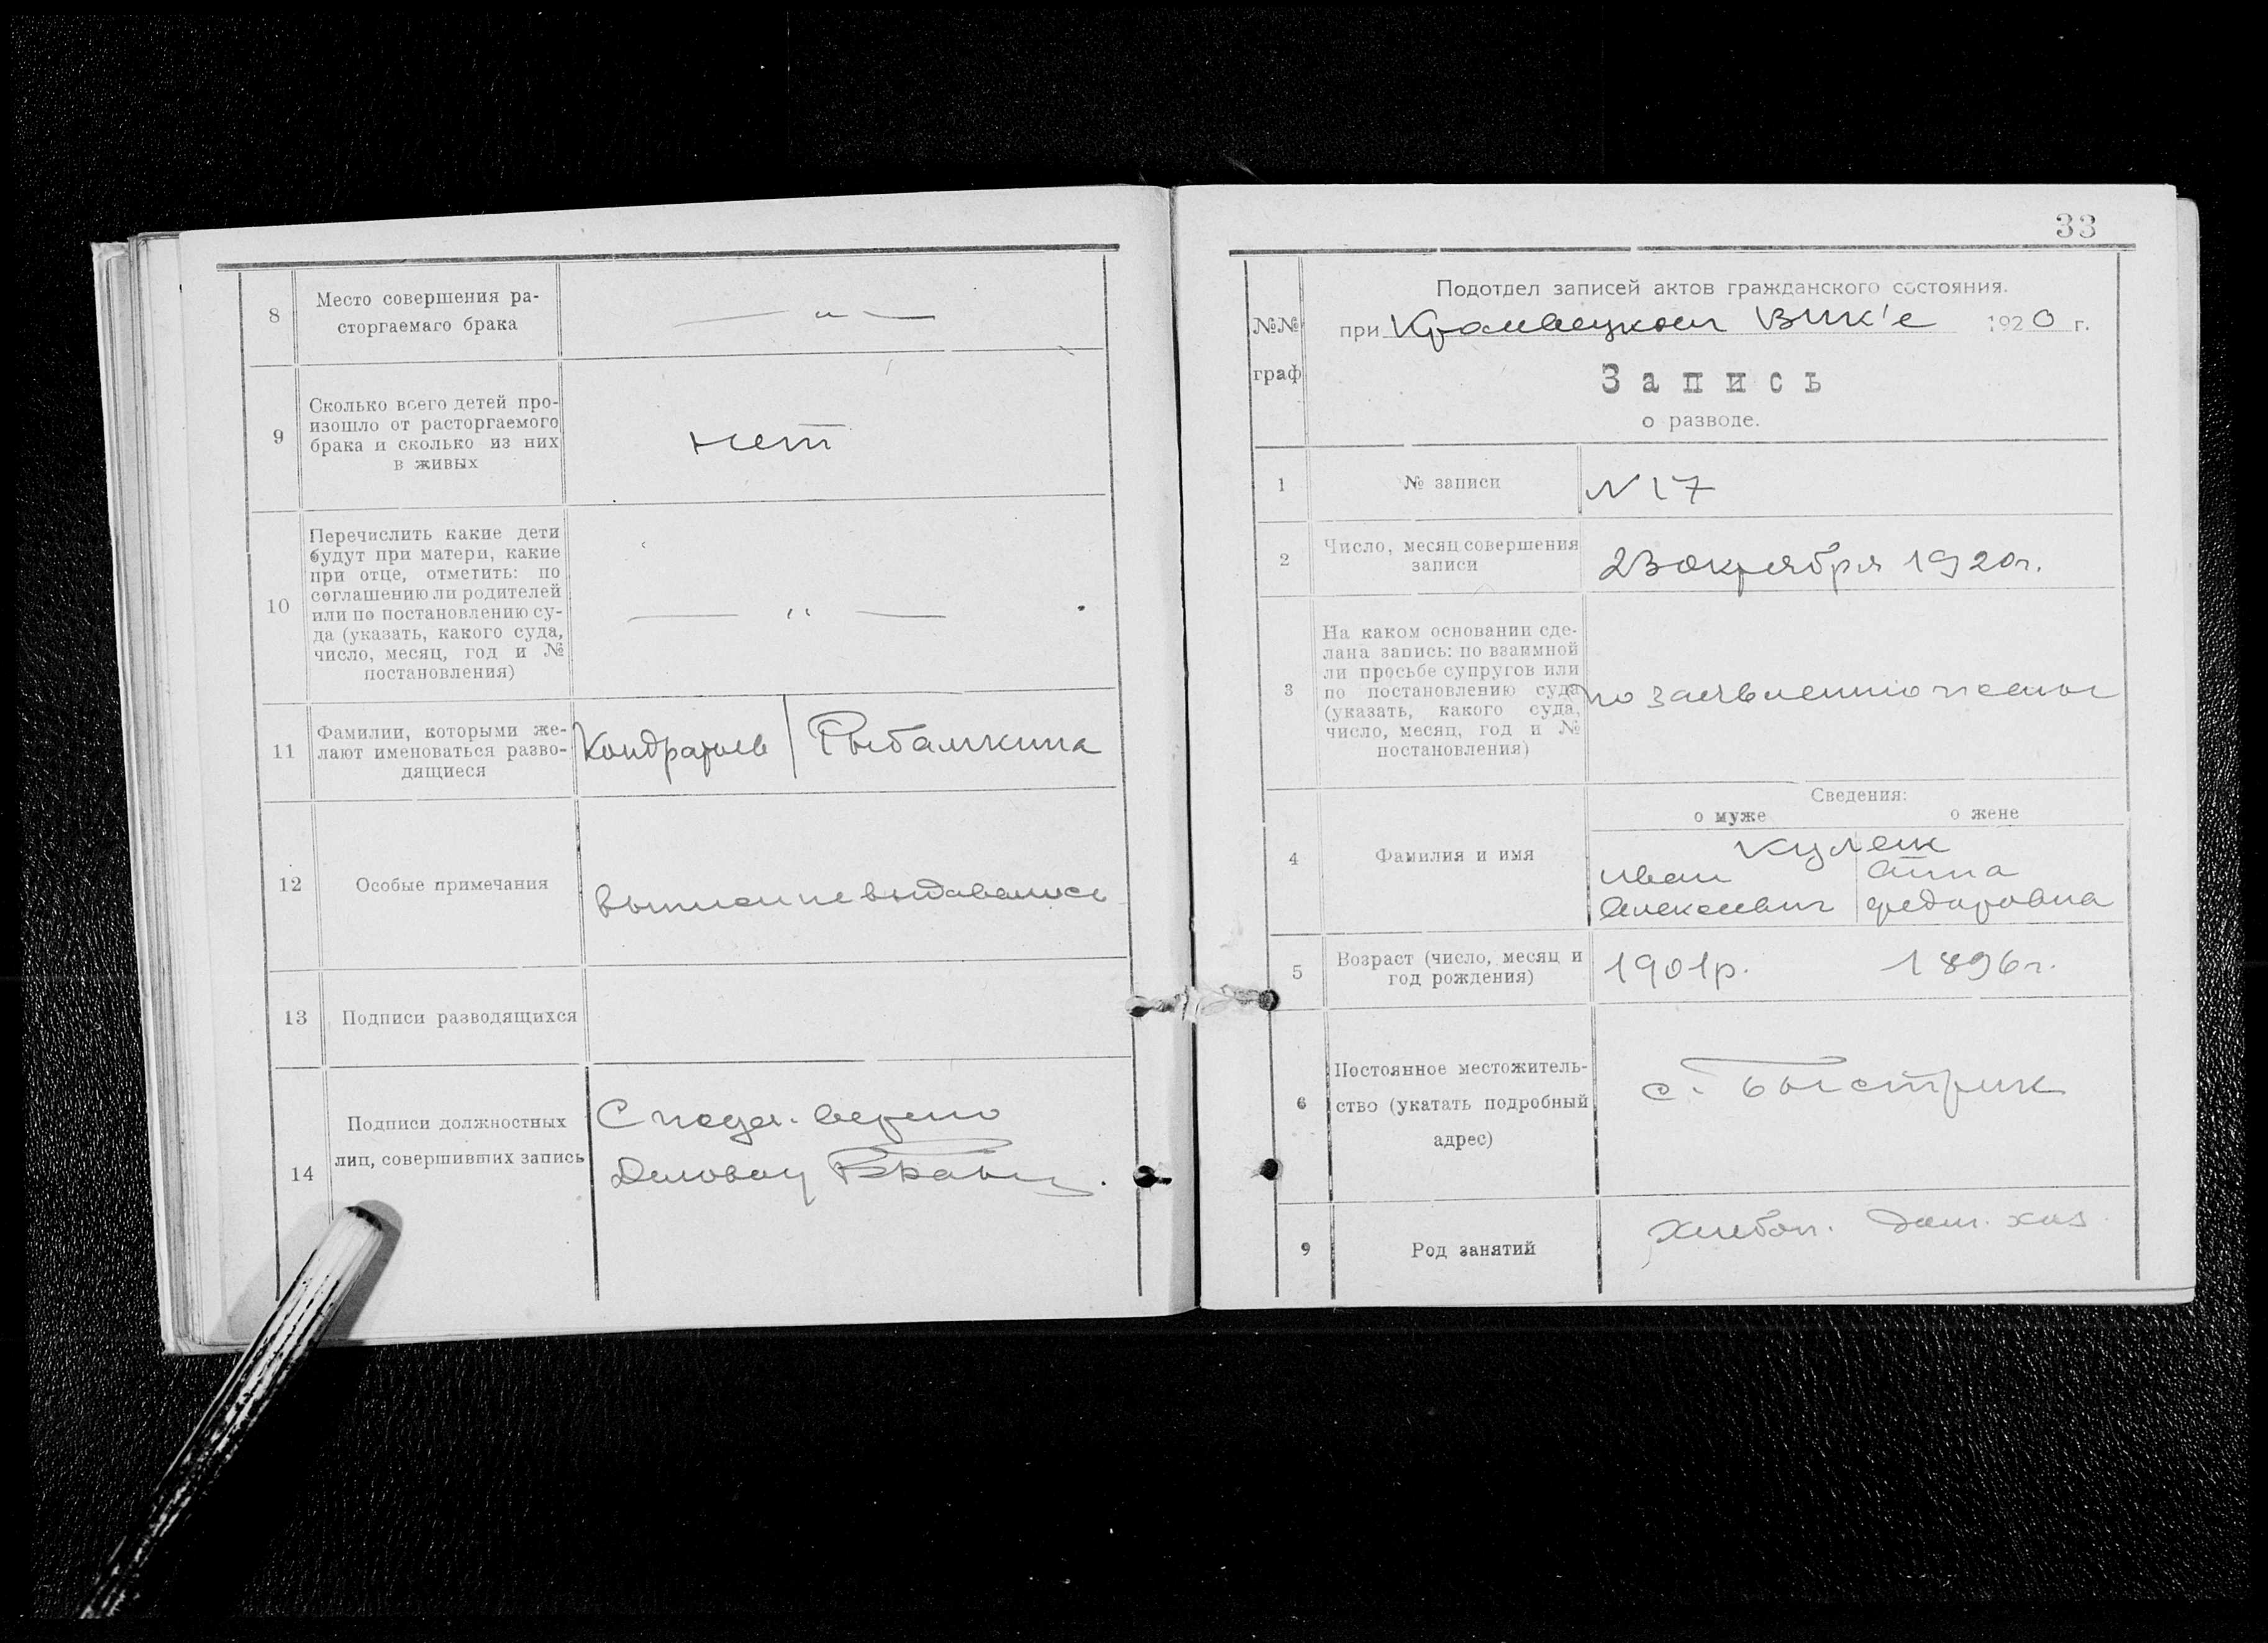 8
Место совершения ра-
сторгаемаго брака
— „ —
9
Сколько всего детей про-
изошло от расторгаемого
брака и сколько из них
в живых
нет
10
Перечислить какие дети
будут при матери, какие
при отце, отметить: по
соглашению ли родителей
или по постановлению су-
да (указать, какого суда,
число, месяц, год и №
постановления)
— „ —
11
Фамилии, которыми же-
лают именоваться разво-
дящиеся
Кондратьев | Рыбалкина
12
Особые примечания
выписи не выдавались
13
Подписи разводящихся
14
Подписи должностных
лиц, совершивших запись
С подл. верно
Деловод
33
№№
граф
Подотдел записей актов гражданского состояния.
при Кролевецком ВИК'е 1920 г.
Запись
о разводе.
1
№ записи
N 17
2
Число, месяц совершения
записи
23 октября 1920г.
3
На каком основании сде-
лана запись: по взаимной
ли просьбе супругов или
по постановлению суда
(указать, какого суда,
число, месяц, год и №
постановления)
по заявлению жены
Сведения:
о муже о жене
4
Фамилия и имя
Кулеш
Иван Анна
Алексеевич Федоровна
5
Возраст (число, месяц и
год рождения)
1901р. 1896г.
6
Постоянное местожитель-
ство (укатать подробный
адрес)
с. Быстрик
9
Род занятий
Хлебоп. дом. хоз.